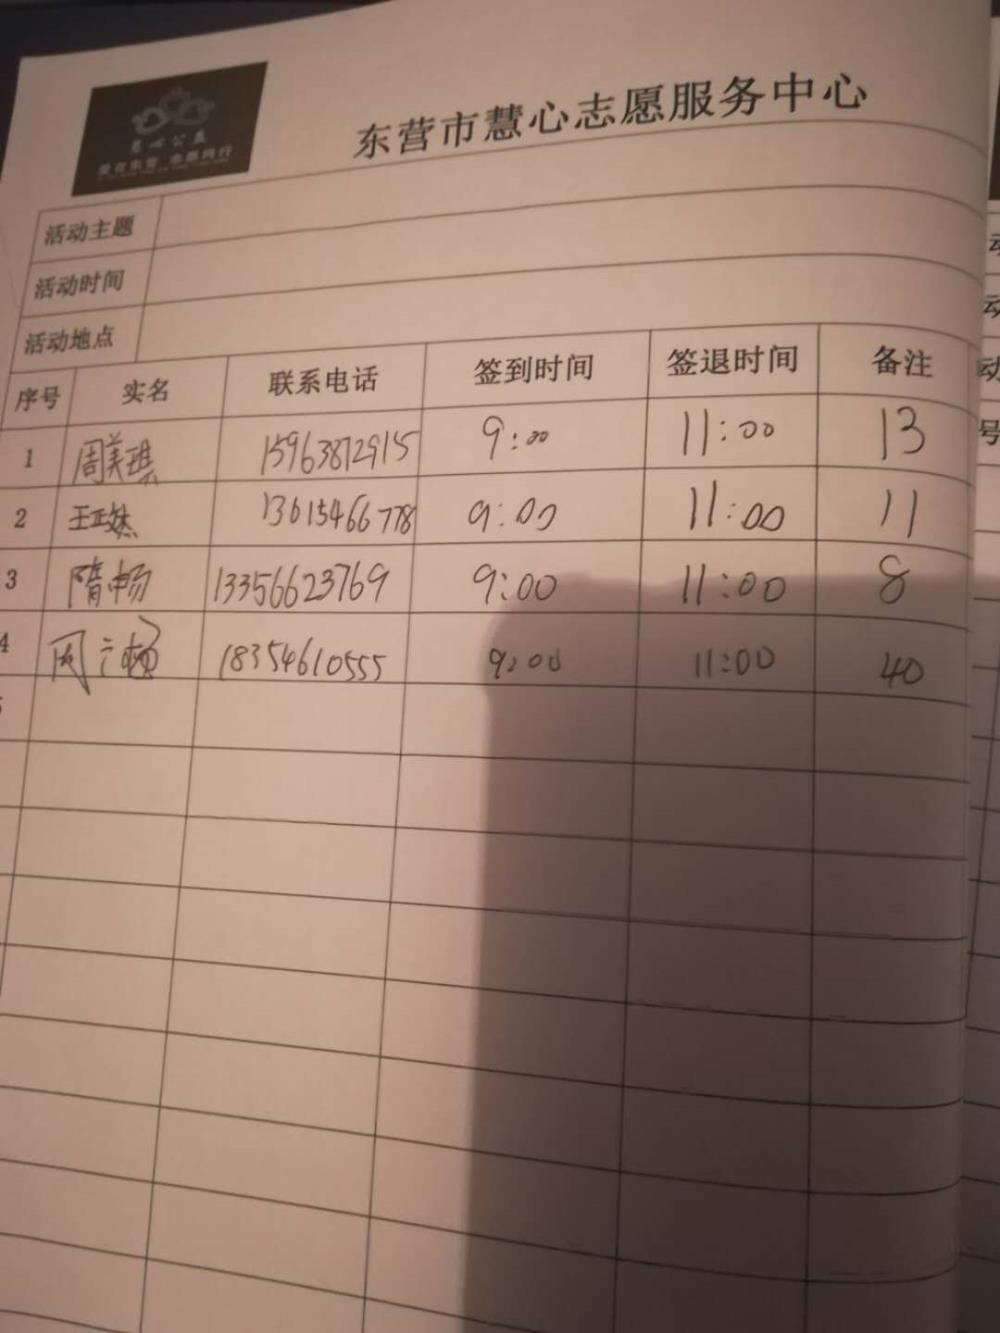 慧心公益
爱在东营 志愿同行
东营市慧心志愿服务中心
活动主题
活动时间
活动地点
序号 实名 联系电话 签到时间 签退时间 备注
1 周美琪 15963872915 9:00 11:00 13
2 王正然 13615466778 9:00 11:00 11
3 隋畅 13356623769 9:00 11:00 8
4 周 18354610555 9:00 11:00 40
动
动
动
号